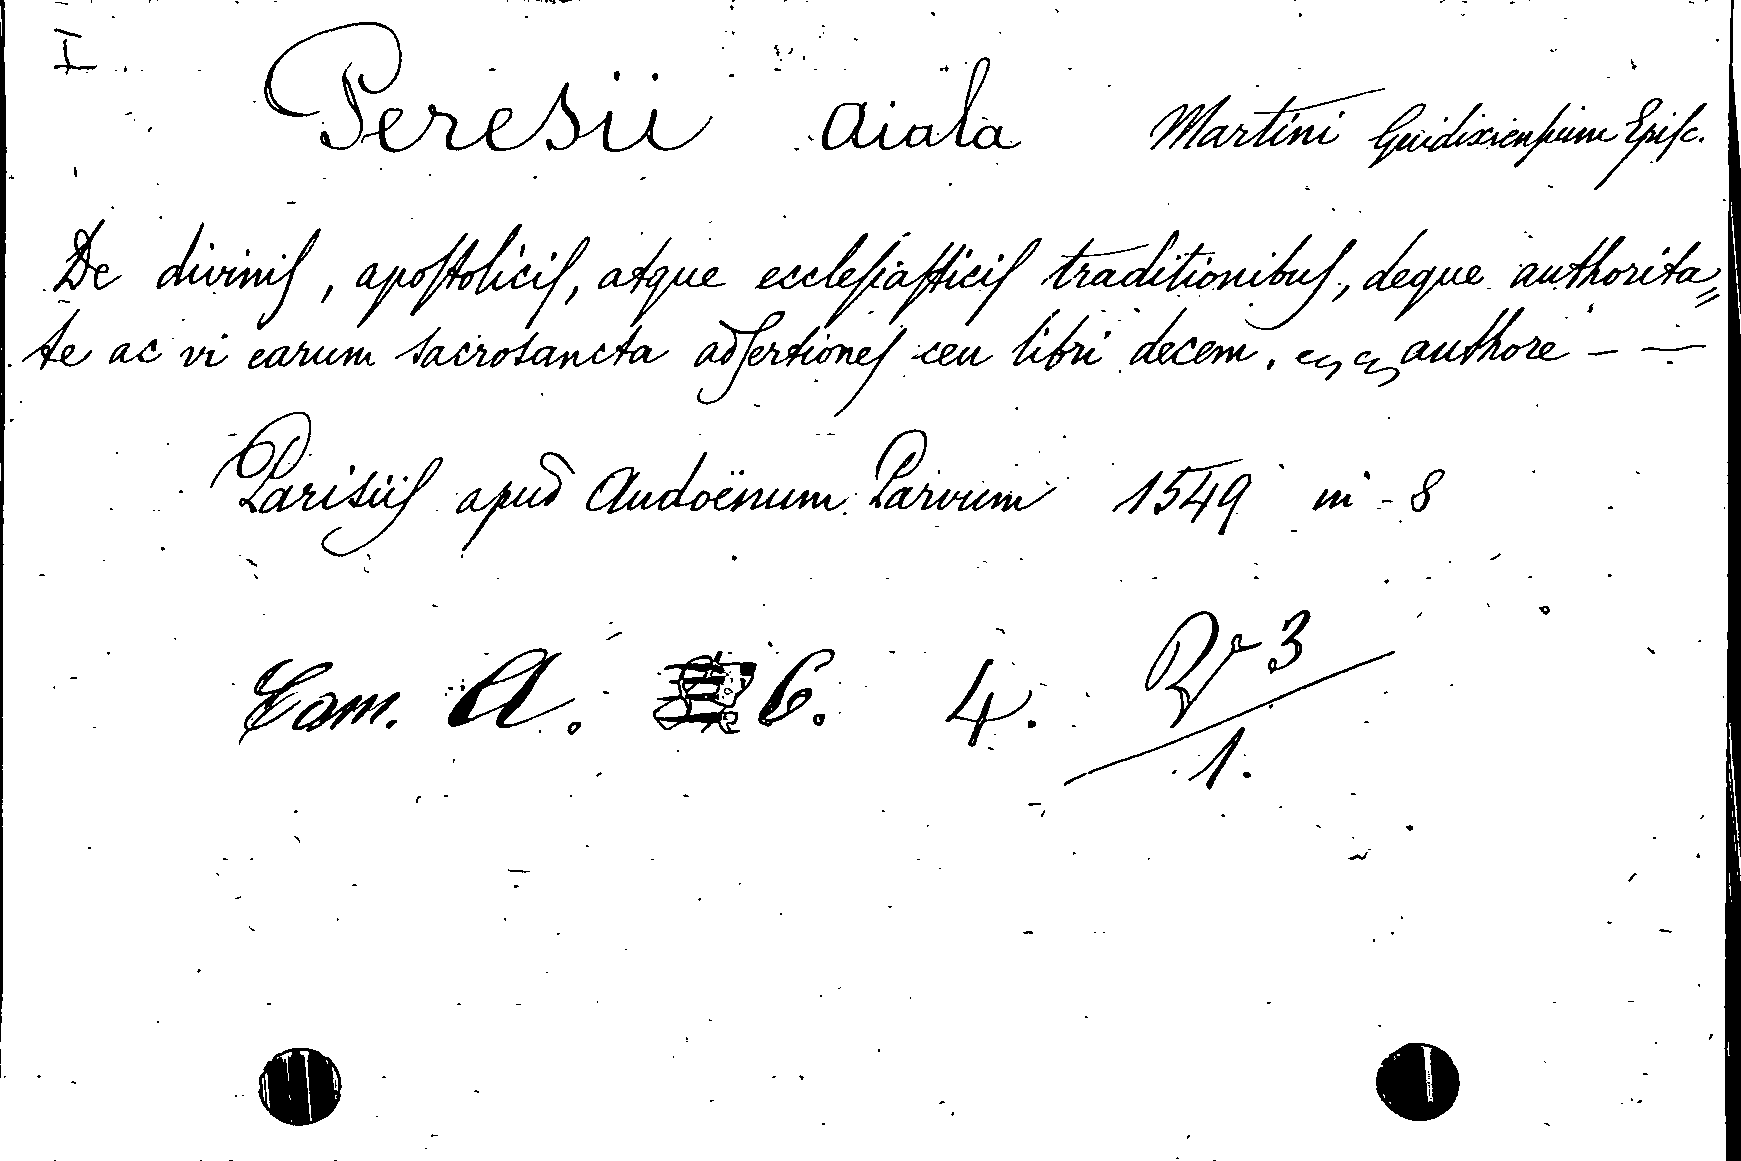 I
Peresii Aiala Martini Guidixiensium Episc.
De divinis, apostolicis, atque ecclesiasticis traditionibus, deque authorita=
te ac vi earum sacrosancta adsertiones ceu libri decem. authore - -
Parisiis apud Audoënum Parvum 1549 in-8
Cam. A. 6. 4. 3
1.